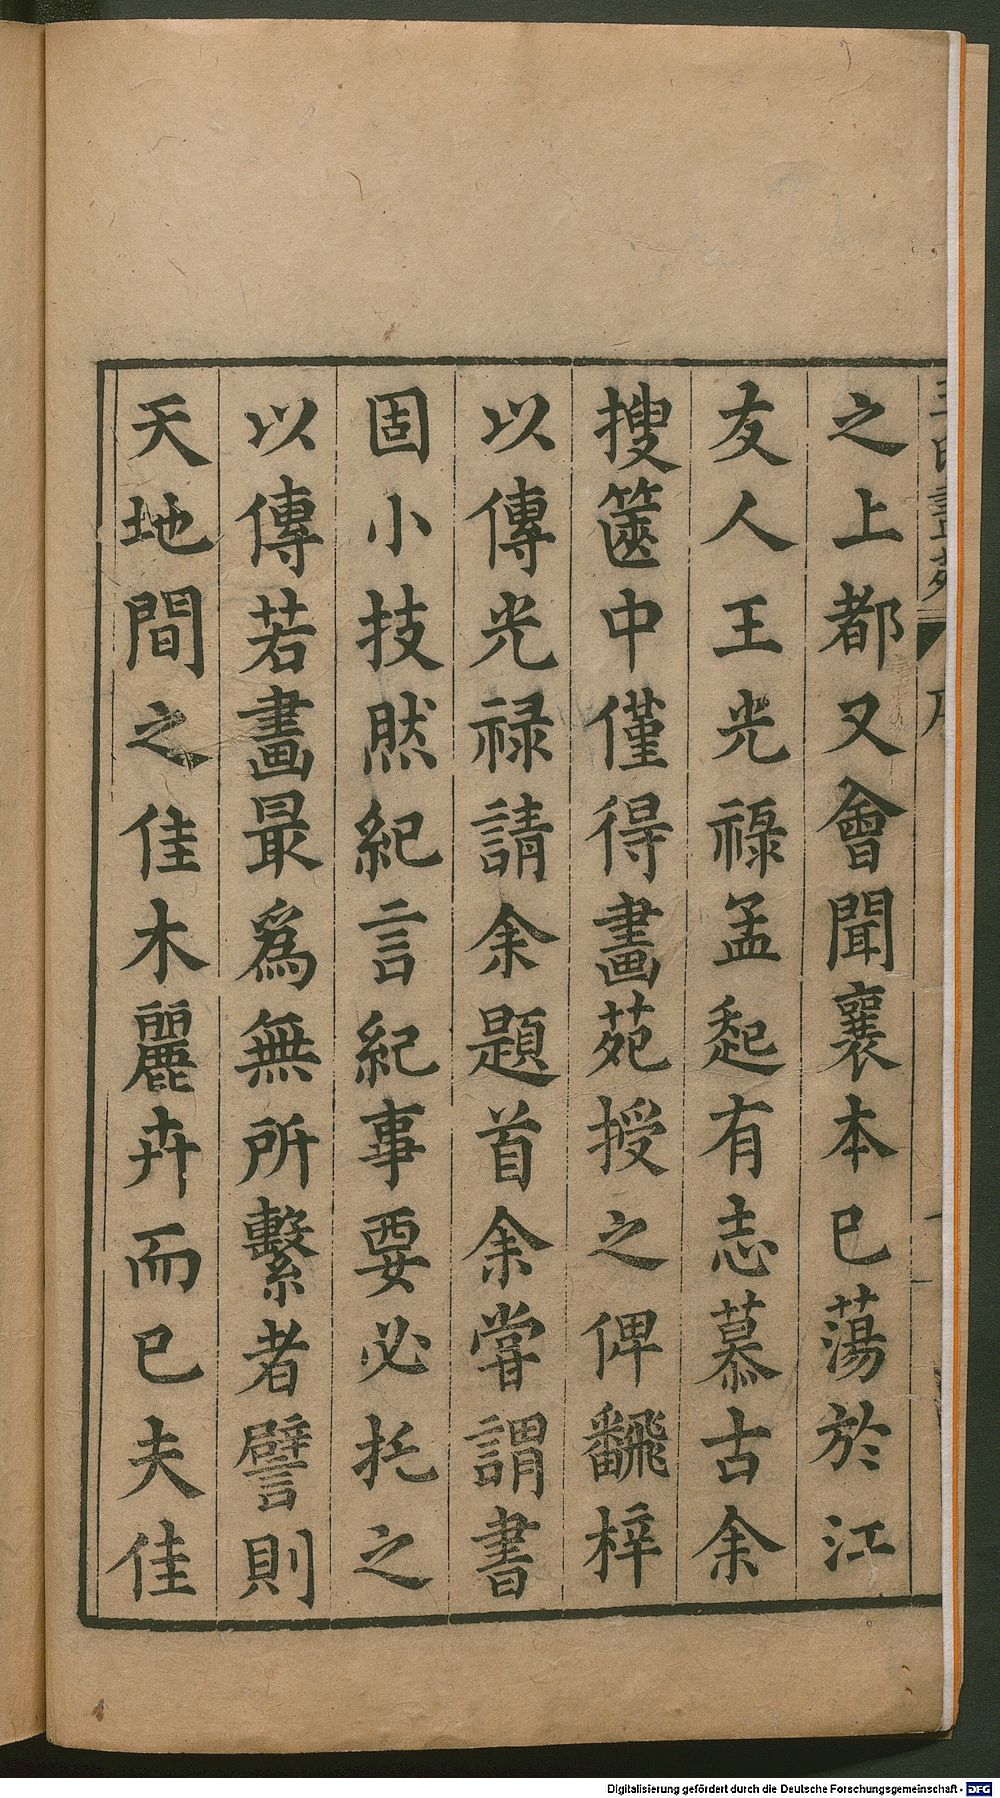 之上都又會聞襄本已蕩於江
友人王光祿孟起有志慕古余
搜篋中僅得畫苑授之俾飜梓
以傳光祿請余題首余嘗謂書
固小技然紀言紀事要必托之
以傳若畫最爲無所繫者譬則
天地間之佳木麗卉而已夫佳
Digitalisierung gefördert durch die Deutsche Forschungsgemeinschaft - DFG